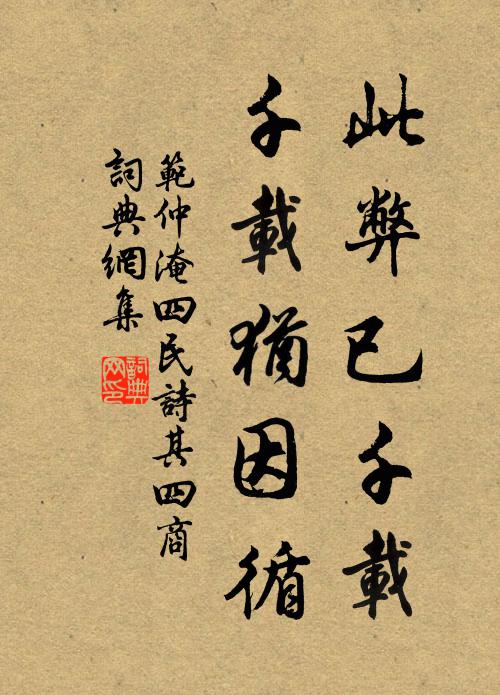 此弊已千載
千載猶因循
範仲淹四民詩其四商
詞典網集
詞典网印